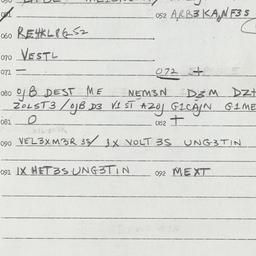 052 ARB3KANF3S
060 REHKLPGS2
070 VESTL
071 — 072 +
080 OJB DEST ME NEM3N D3M DZ+
ZOLST3/OJB D3 V1ST AZOJ G1CGIN G1ME
081 O 082 +
090 VEL3XM3R 3S/ 1X VOLT 3S UNG3TIN
091 IX HET3S UNG3TIN 092 MEXT